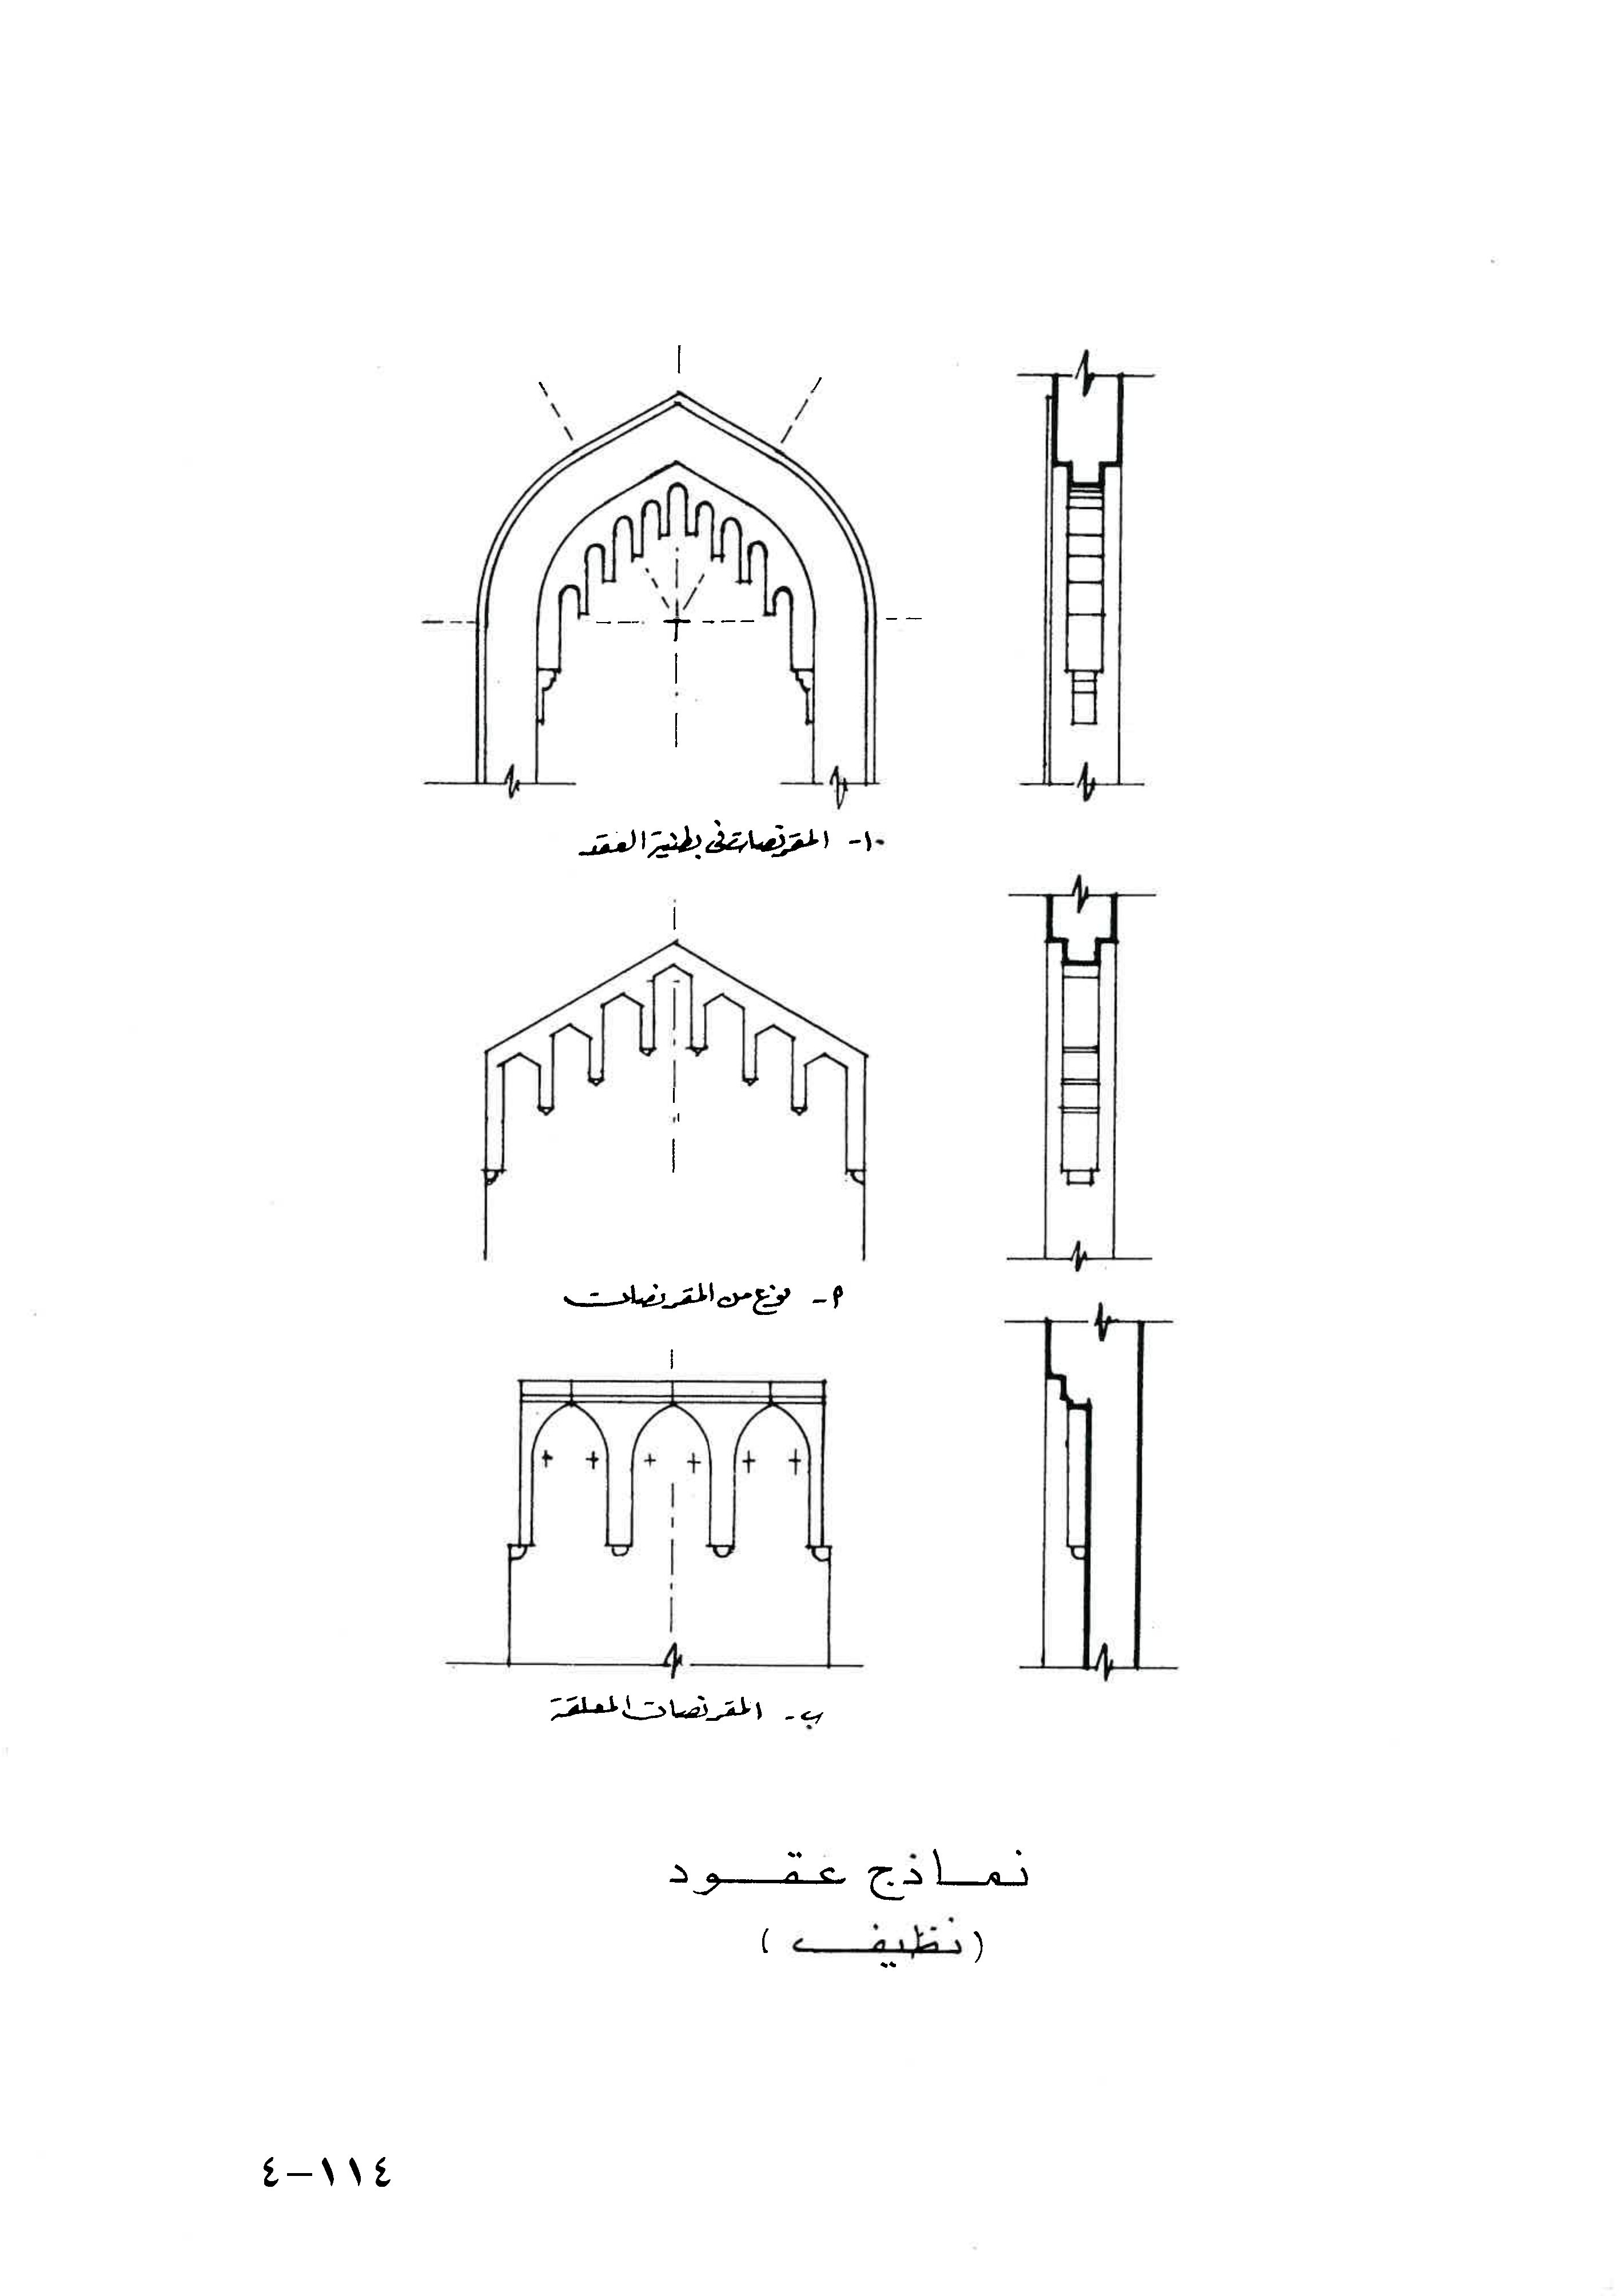 ١٠- المقرنصات في بطنية العقد
٢- نوع من المقرنصات
ب- المقرنصات المعلقة
نماذج عقود
(نظيف)
٤-١١٤